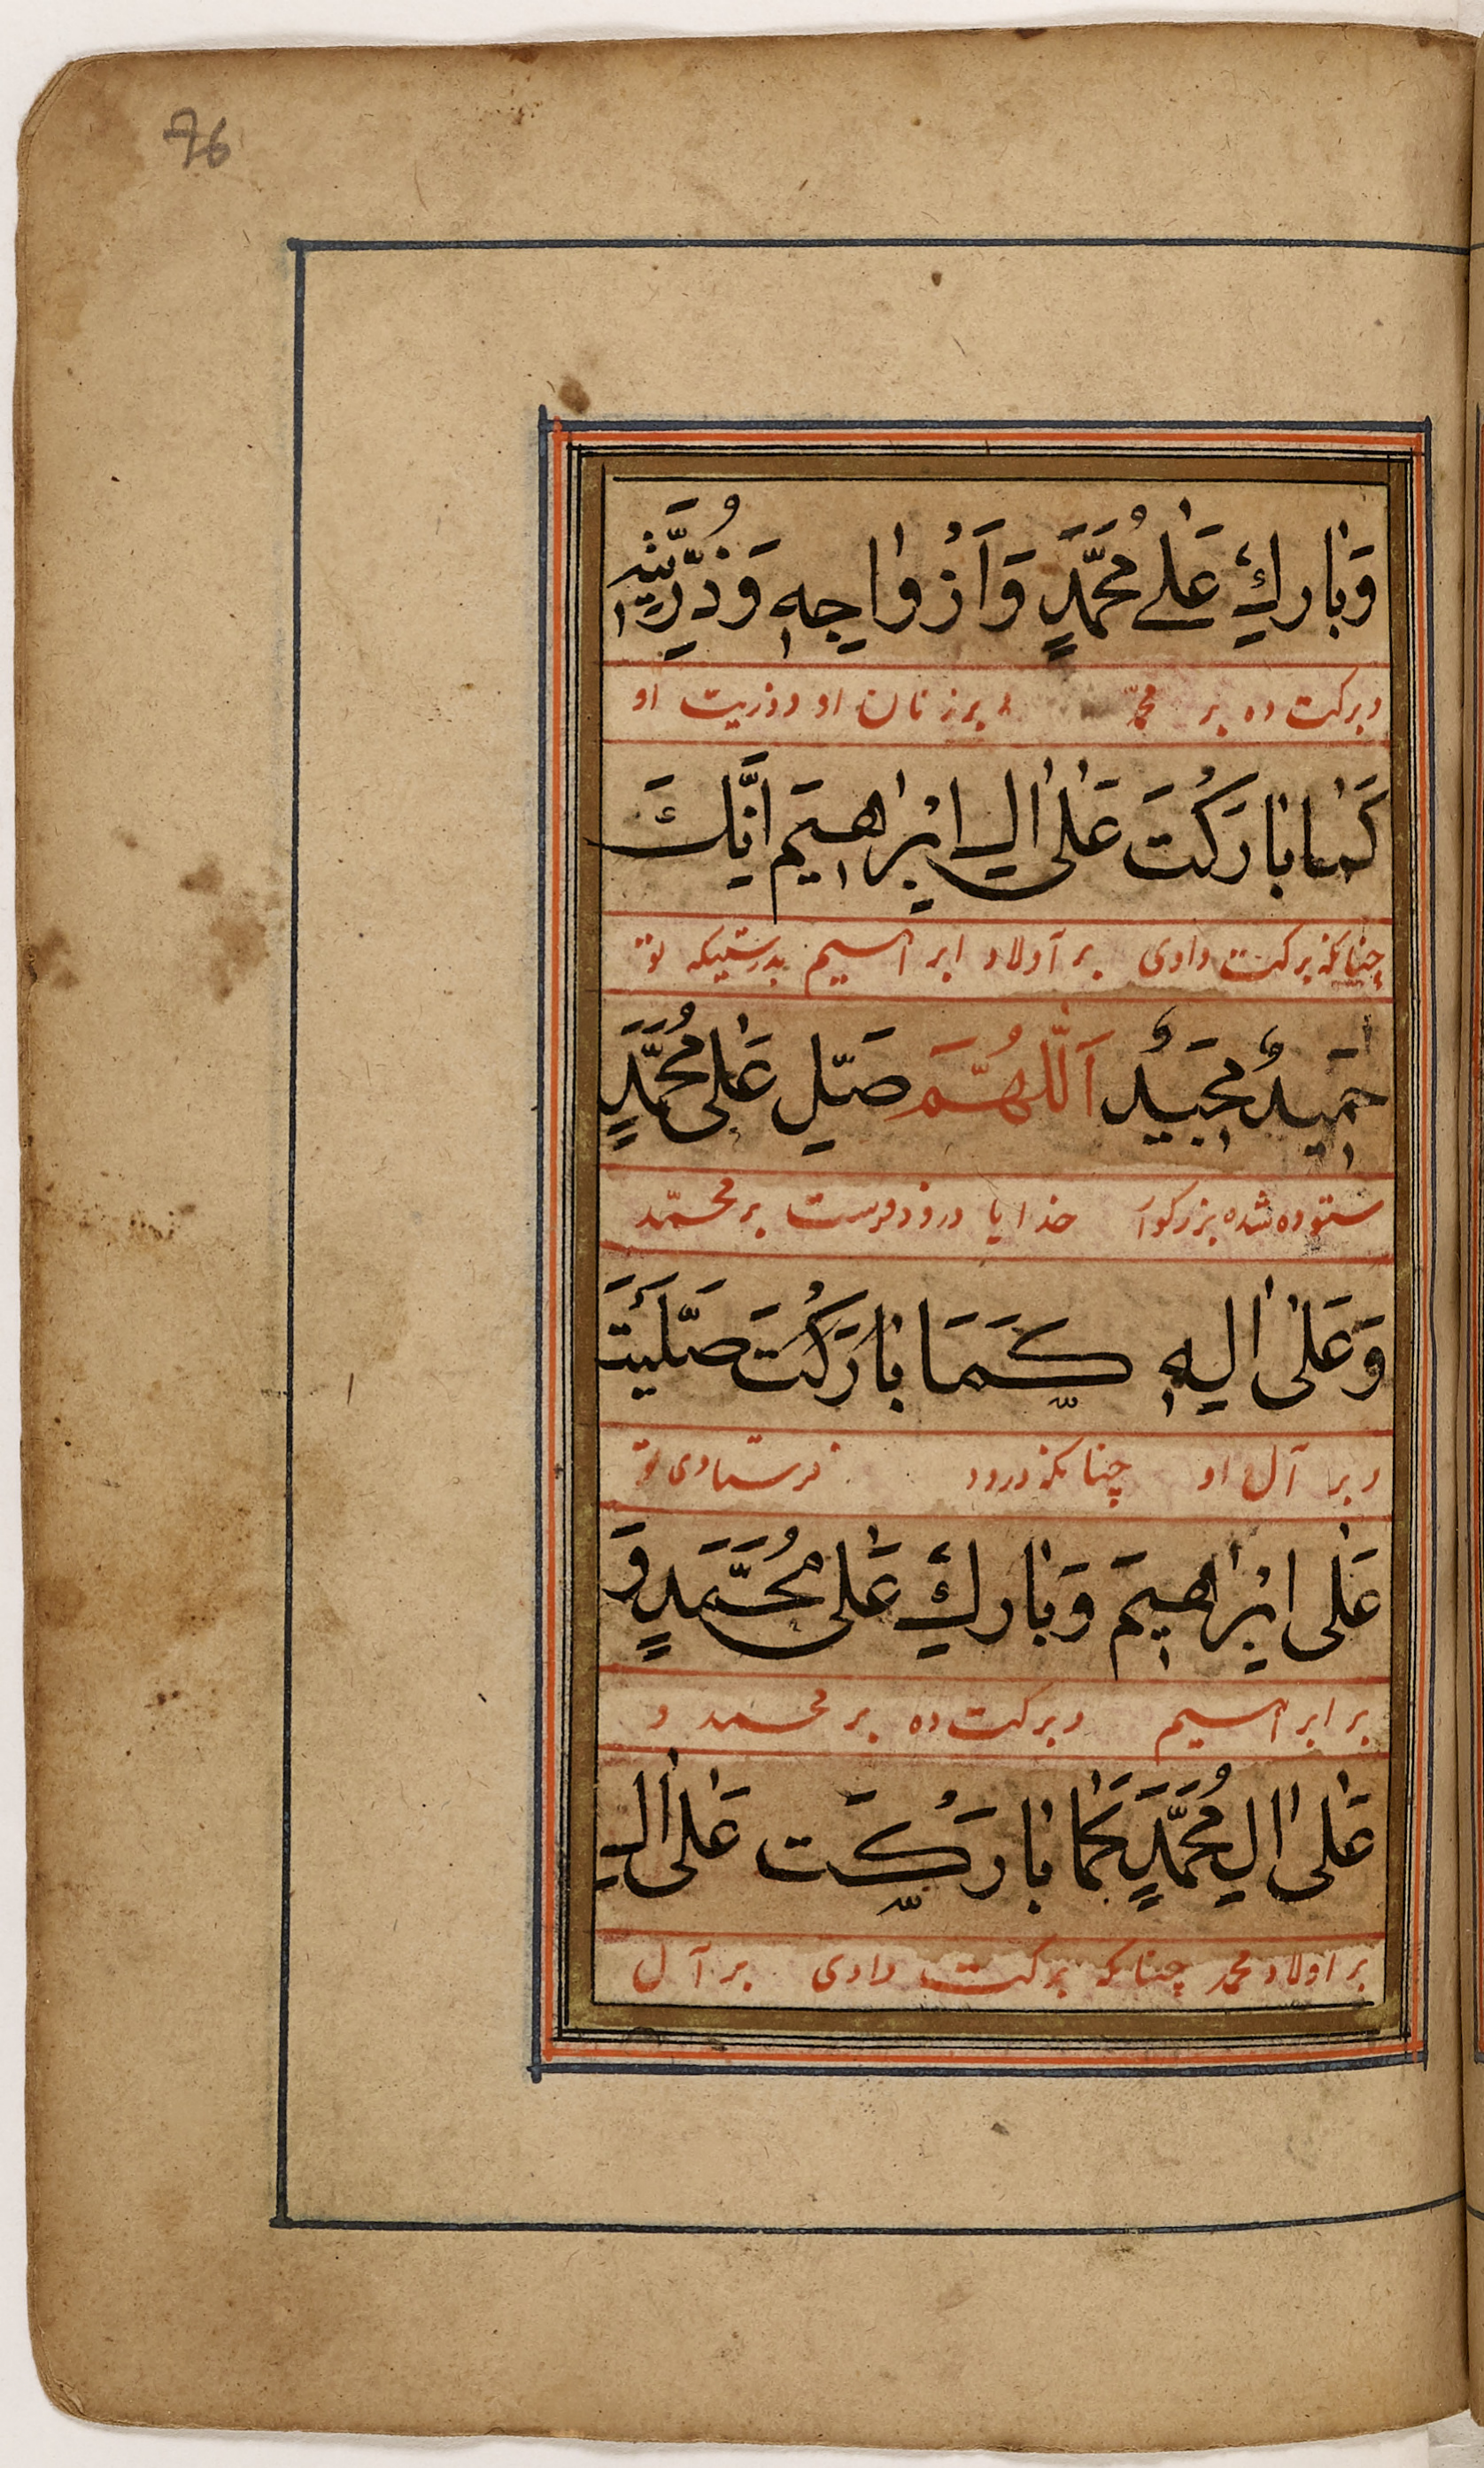 76
وَبَارِكْ عَلٰے مُحَمَّدٍ وَاَزْوَاجِهٖ وَذُرِّيَّتِهٖ
وبرکت ده بر محمّد و بر زنان او و ذریت او
كَمَا بَارَكْتَ عَلٰى اٰلِ اِبْرَاهِيْمَ اِنَّكَ
چنانکه برکت دادی بر آولاد ابراهیم بدرستیکه تو
حَمِيْدٌ مَجِيْدٌ اَللّٰهُمَّ صَلِّ عَلٰى مُحَمَّدٍ
ستوده شده بزرکوار خدایا درود فرست بر محمّد
وَعَلٰى اٰلِهٖ كَمَا بَارَكْتَ صَلَّيْتَ
و بر آل او چنانکه درود فرستادی تو
عَلٰى اِبْرَاهِيْمَ وَبَارِكْ عَلٰى مُحَمَّدٍ وَ
بر ابراهیم و برکت ده بر محمد و
عَلٰى اٰلِ مُحَمَّدٍ كَمَا بَارَكْتَ عَلٰى اٰلِ
بر اولاد محمد چنانکه برکت دادی بر آل